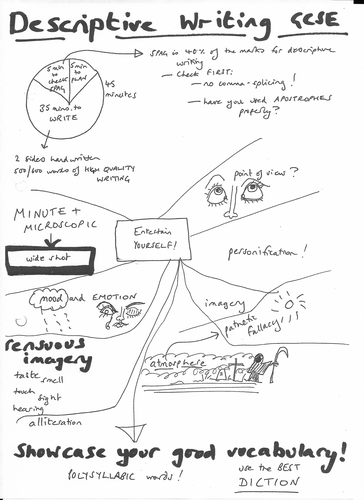 Descriptive Writing GCSE
SPAG is 40% of the marks for descriptive
writing
- Check FIRST:
- no comma-splicing!
- have you used APOSTROPHES
properly?
5 min
to
check
SPAG
5 min
to
PLAN
45
minutes
35 mins to
WRITE
2 sides handwritten
500/600 words of HIGH QUALITY
WRITING
point of view?
MINUTE +
MICROSCOPIC
Entertain
YOURSELF!
wide shot
personification!
mood and EMOTION
imagery
pathetic
fallacy!!!
sensuous
imagery
taste
smell
touch
sight
hearing
alliteration
atmosphere
Showcase your good vocabulary!
POLYSYLLABIC words!
use the BEST
DICTION